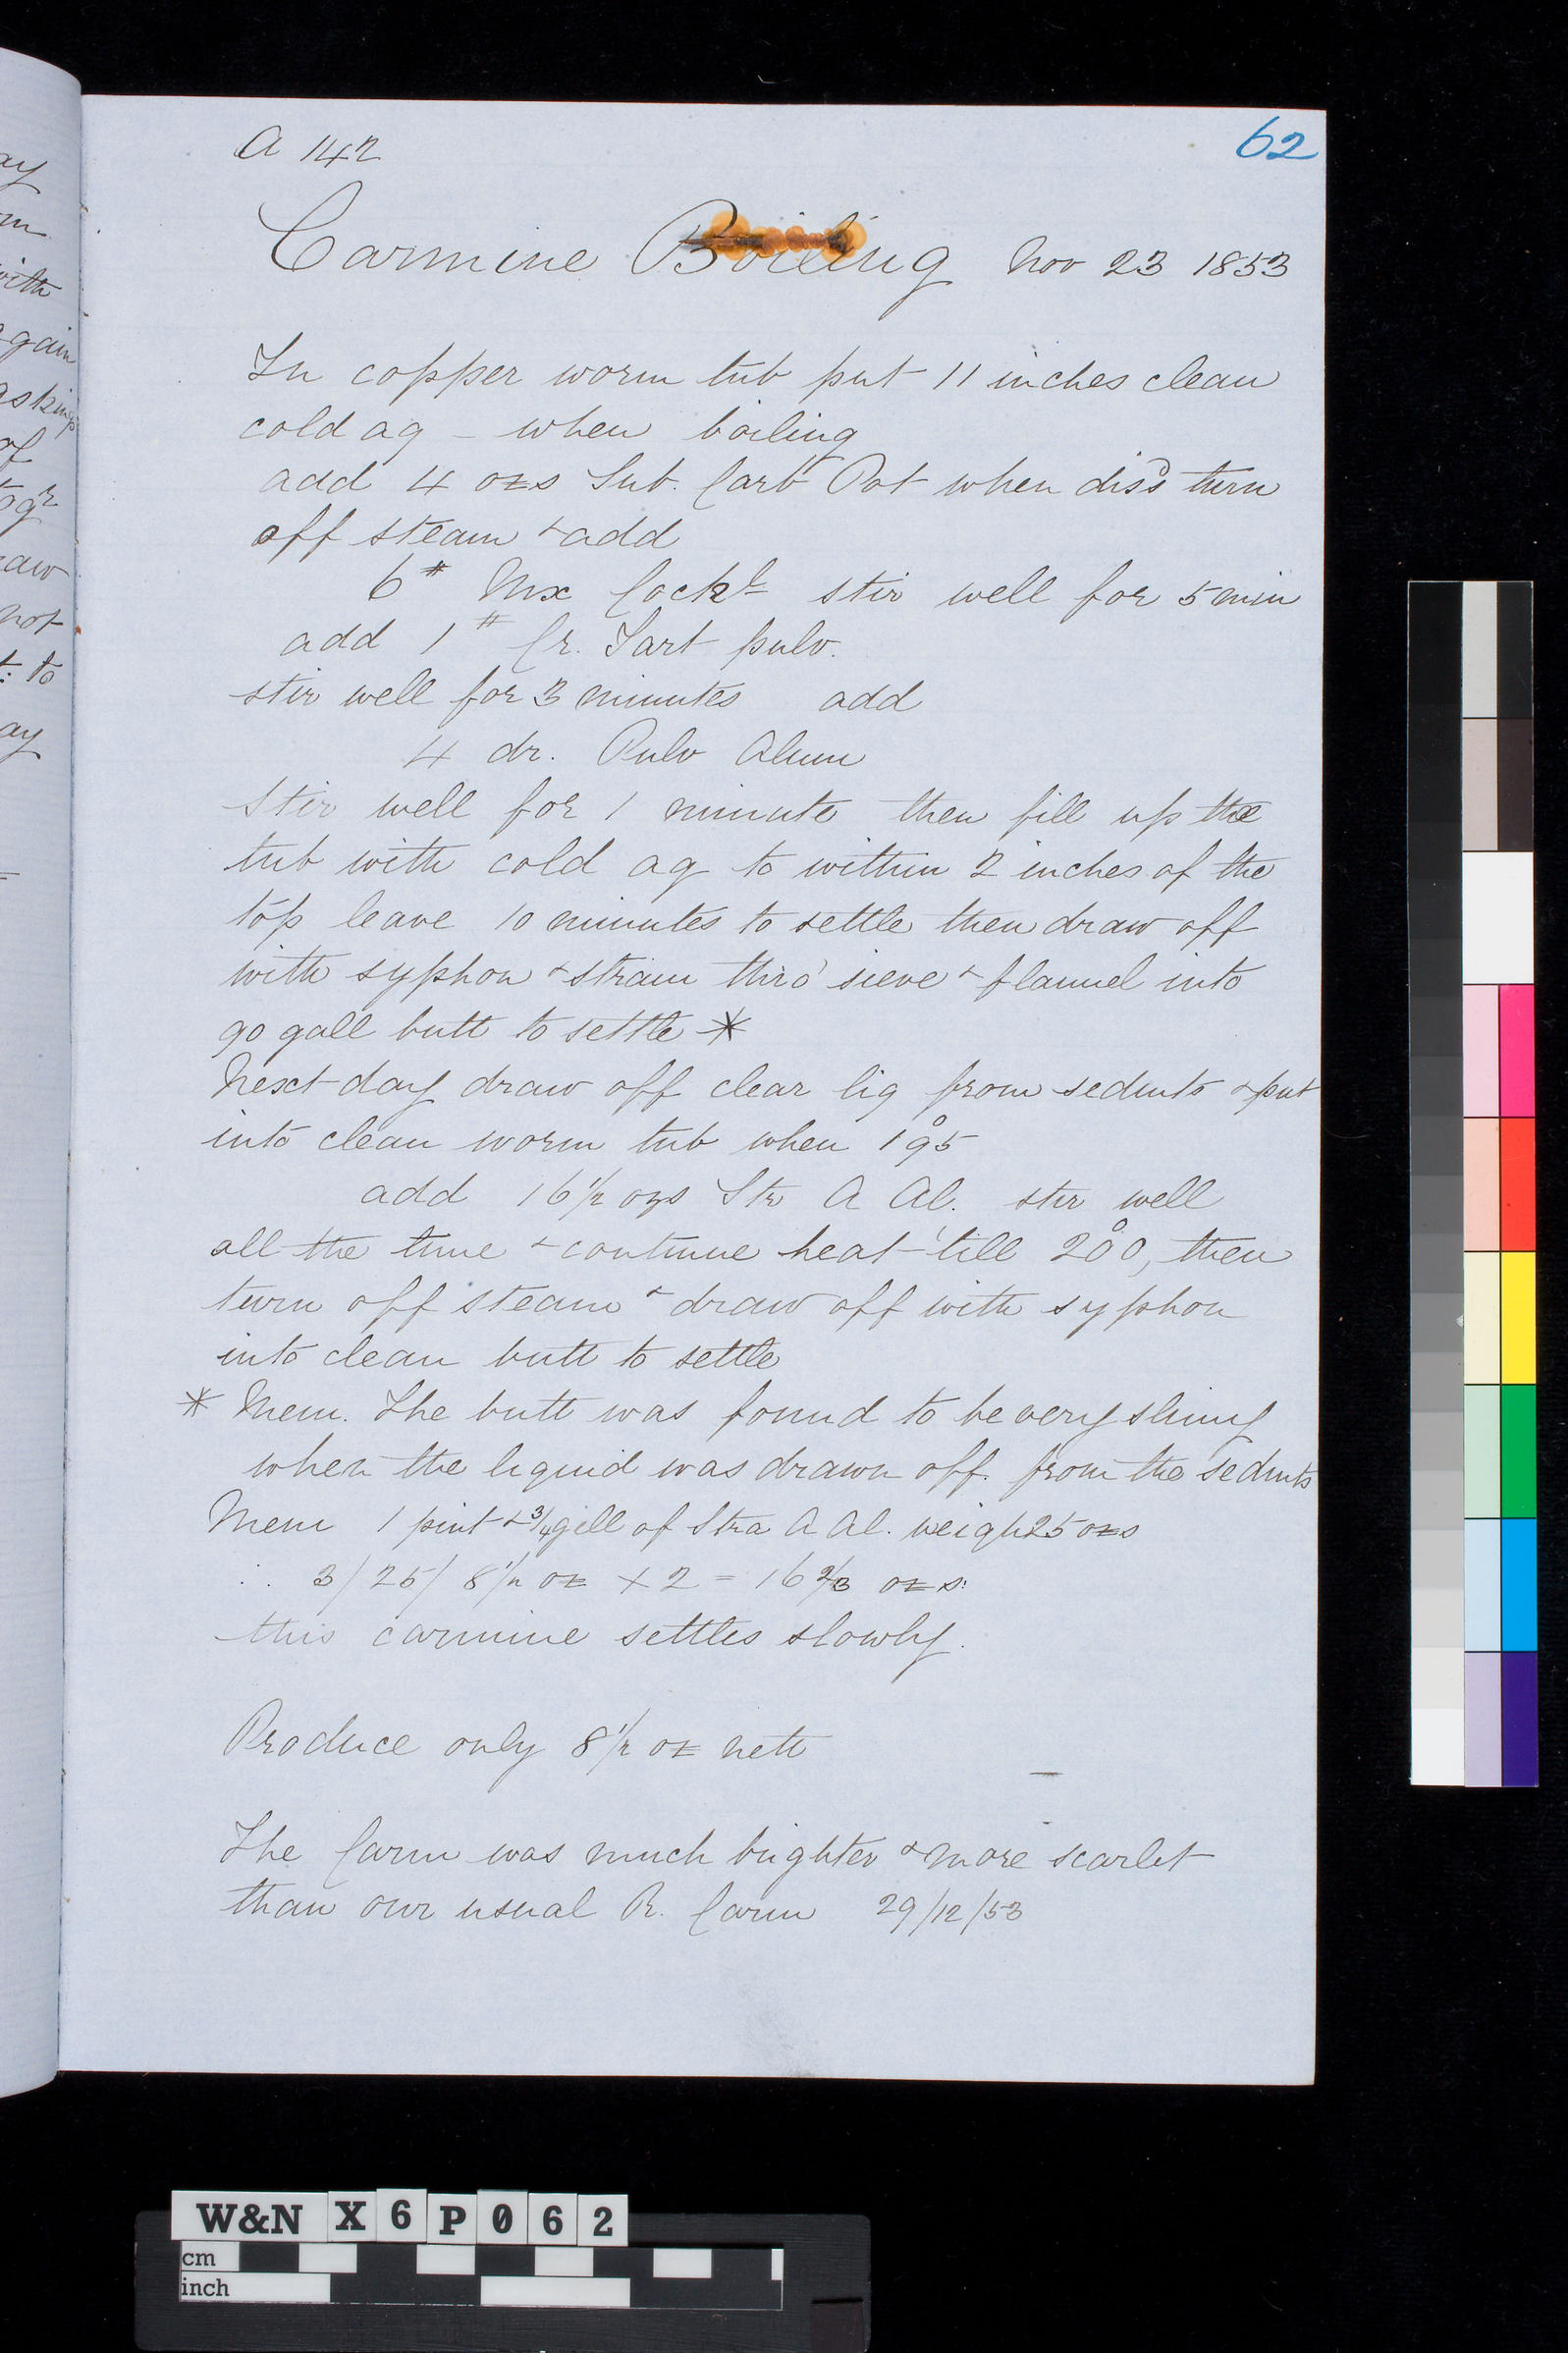 A 142
62
Carmine Boiling Nov 23 1853
In copper worm tub put 11 inches clean
cold aq – when boiling
add 4 ozs Sub. Carb Pot when dissd turn
off steam & add
6 # Mx Cockl stir well for 5 min
add 1 # Cr. Tart pulv.
stir well for 3 minutes add
4 dr. Pulv Alum
Stir well for 1 minute then fill up the
tub with cold aq to within 2 inches of the
top leave 10 minutes to settle then draw off
with syphon & strain thro' sieve & flannel into
90 gall butt to settle *
Next day draw off clear liq from sedmts & put
into clean worm tub when 195°
add 16 1/2 ozs Str A Al. stir well
all the time & continue heat 'till 200°, then
turn off steam & draw off with syphon
into clean butt to settle
* Mem. The butt was found to be very slimy
when the liquid was drawn off. from the sedmts
Mem 1 pint & 3/4 gill of Stra A Al. weigh 25 ozs
∴ 3/25/ 8 1/2 oz × 2 = 16 2/3 ozs:
this carmine settles slowly.
Produce only 8 1/2 oz nett
The Carm was much brighter & more scarlet
than our usual R. Carm 29/12/53
ay
m
with
gain
askings
of
aw
not
t: to
ay
W&N X6P062
cm
inch